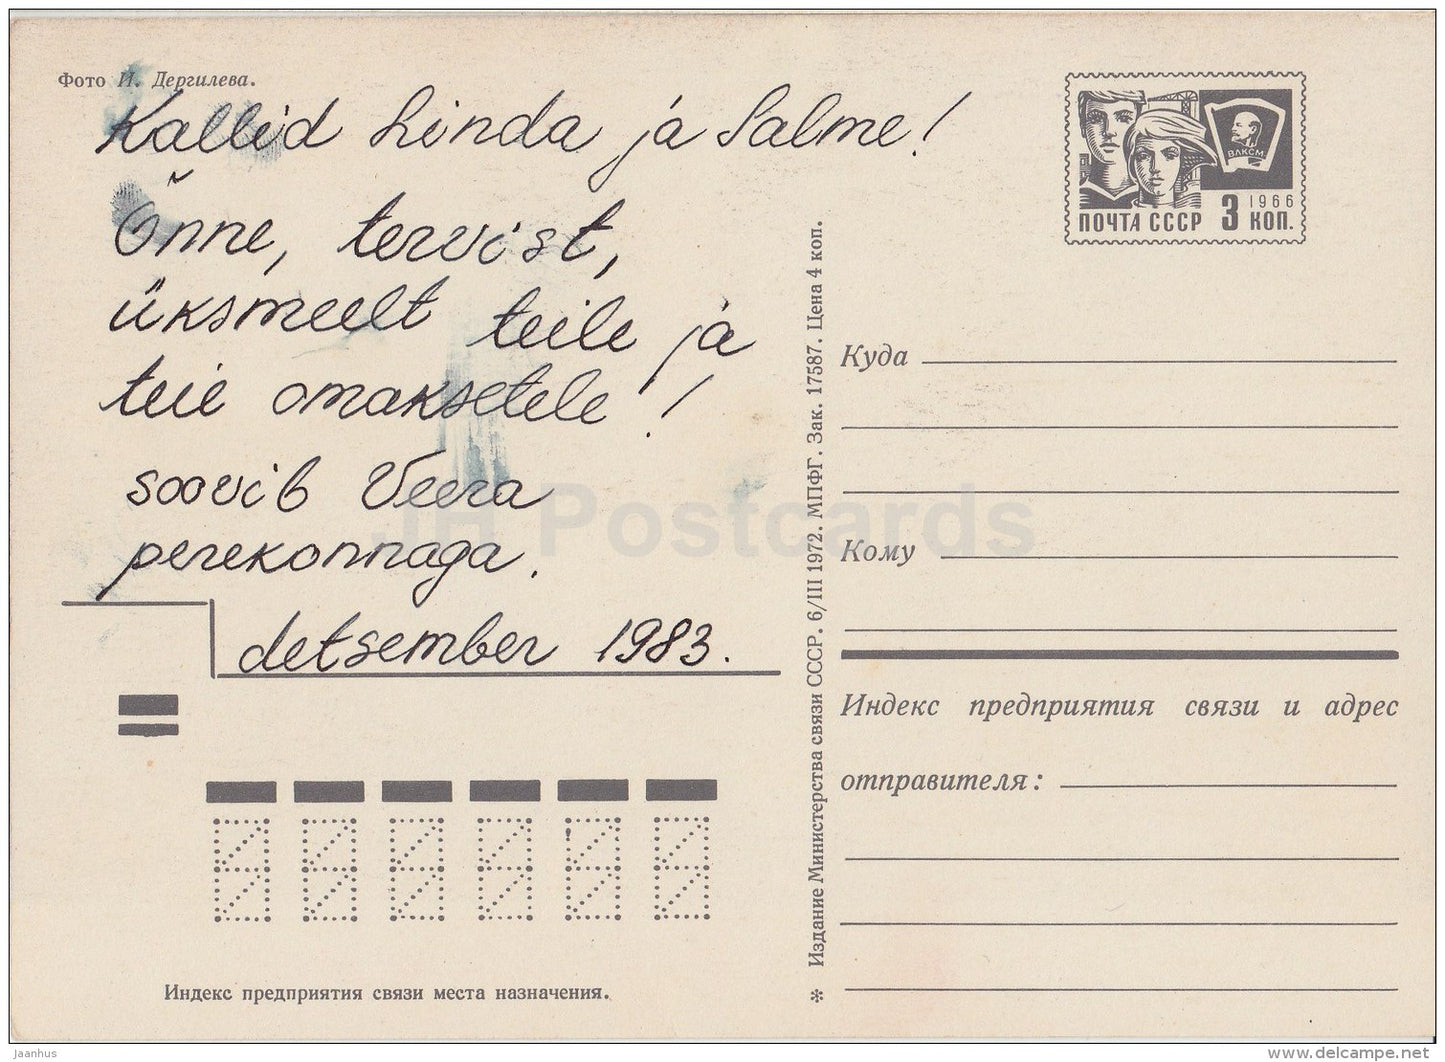 Фото И. Дергилева.
Kallid Linda ja Salme!
Õnne, tervist,
üksmeelt teile ja
teie omaksetele!
soovib Veera
perekonnaga.
detsember 1983.
Индекс предприятия связи места назначения.
✻ Издание Министерства связи СССР. 6/III 1972. МПФГ. Зак. 17587. Цена 4 коп.
ВЛКСМ
1966
ПОЧТА СССР 3 КОП.
Куда
Кому
Индекс предприятия связи и адрес
отправителя:
JH Postcards
Jaanhus
www.delcampe.net